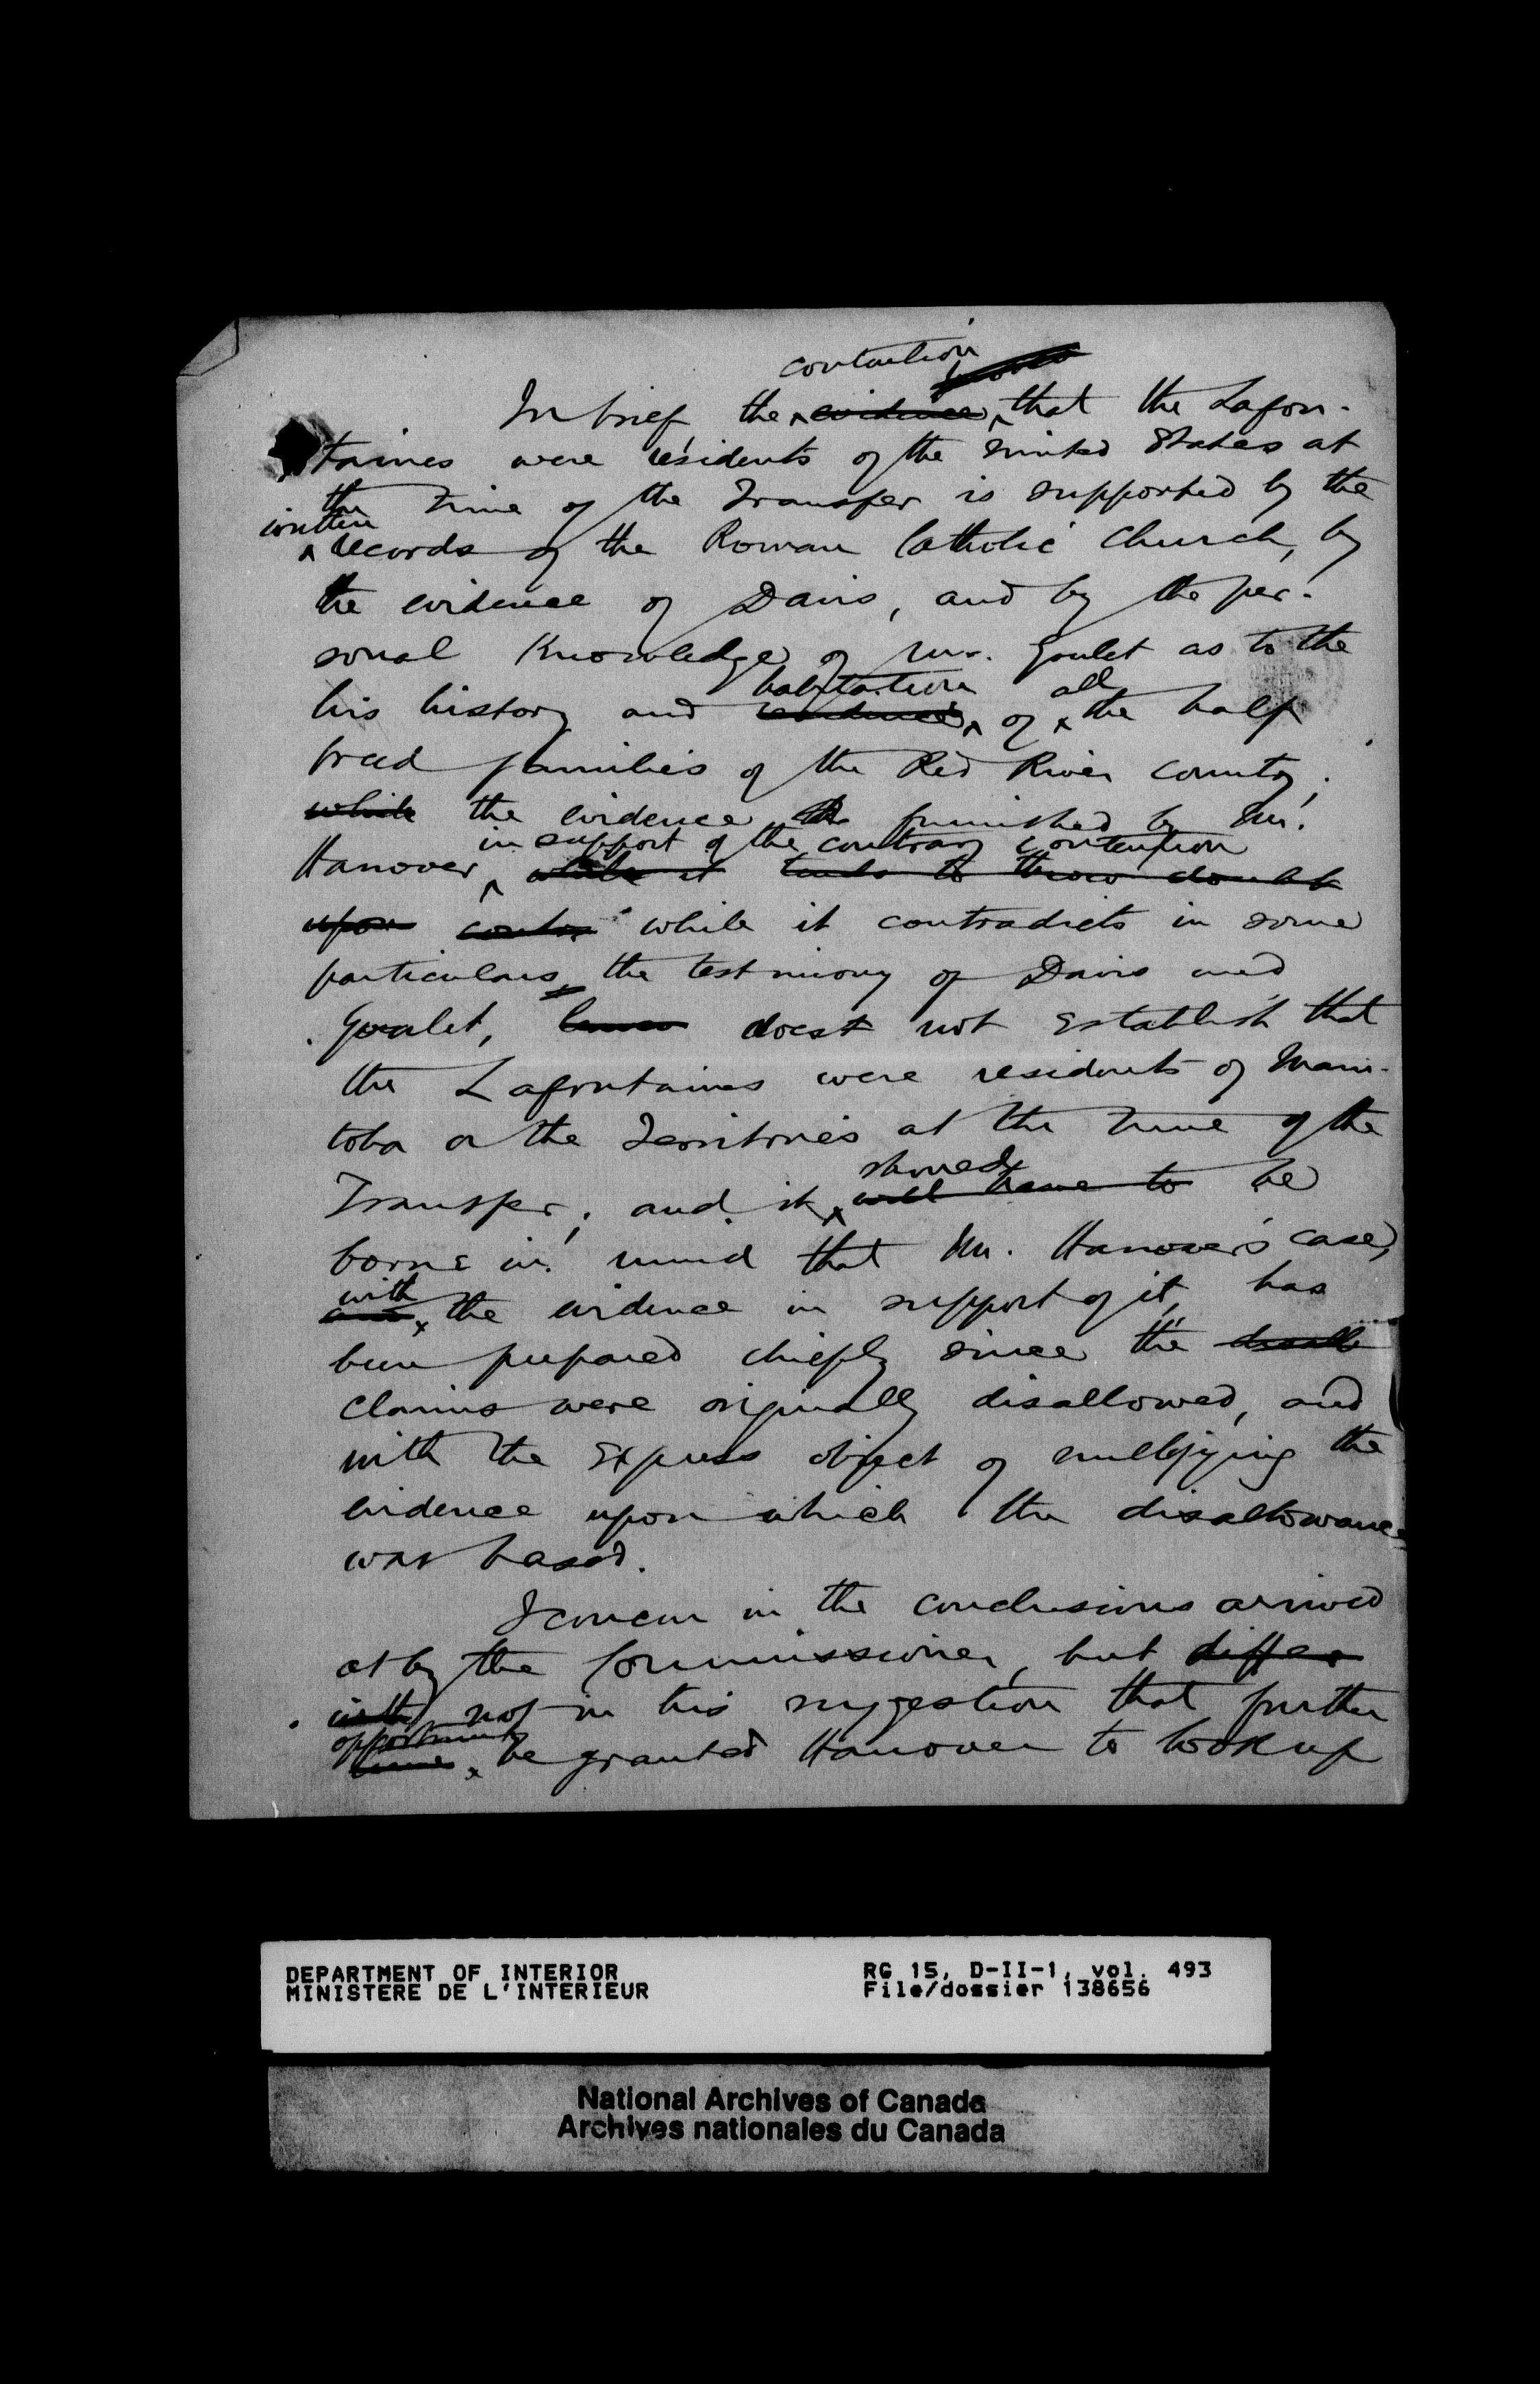 contention
In brief the evidence that the Lafon-
taines were residents of the United States at
the time of the Transfer is supported by the
written
records of the Roman Catholic Church, by
the evidence of Davis, and by the per-
sonal knowledge of Mr. Goulet as to the
habitation all
his history and residence of the half
breed families of the Red River country;
while the evidence furnished by Mr.
in support of the contrary contention
Hanover while it tends to throw doubt
upon contra while it contradicts in some
particulars, the testimony of Davis and
Goulet, does not establish that
the Lafontaines were residents of Mani-
toba or the Territories at the time of the
should
Transfer; and it will have to be
borne in mind that Mr. Hanover's case,
with
and the evidence in support of it, has
been prepared chiefly since the disall
claims were originally disallowed, and
with the express object of nullifying the
evidence upon which the disallowance
was based.
I concur in the conclusions arrived
at by the Commissioner, but differ
with not in his suggestion that further
opportunity
time be granted Hanover to look up
DEPARTMENT OF INTERIOR RG 15, D-II-1, vol. 493
MINISTERE DE L'INTERIEUR File/dossier 138656
National Archives of Canada
Archives nationales du Canada